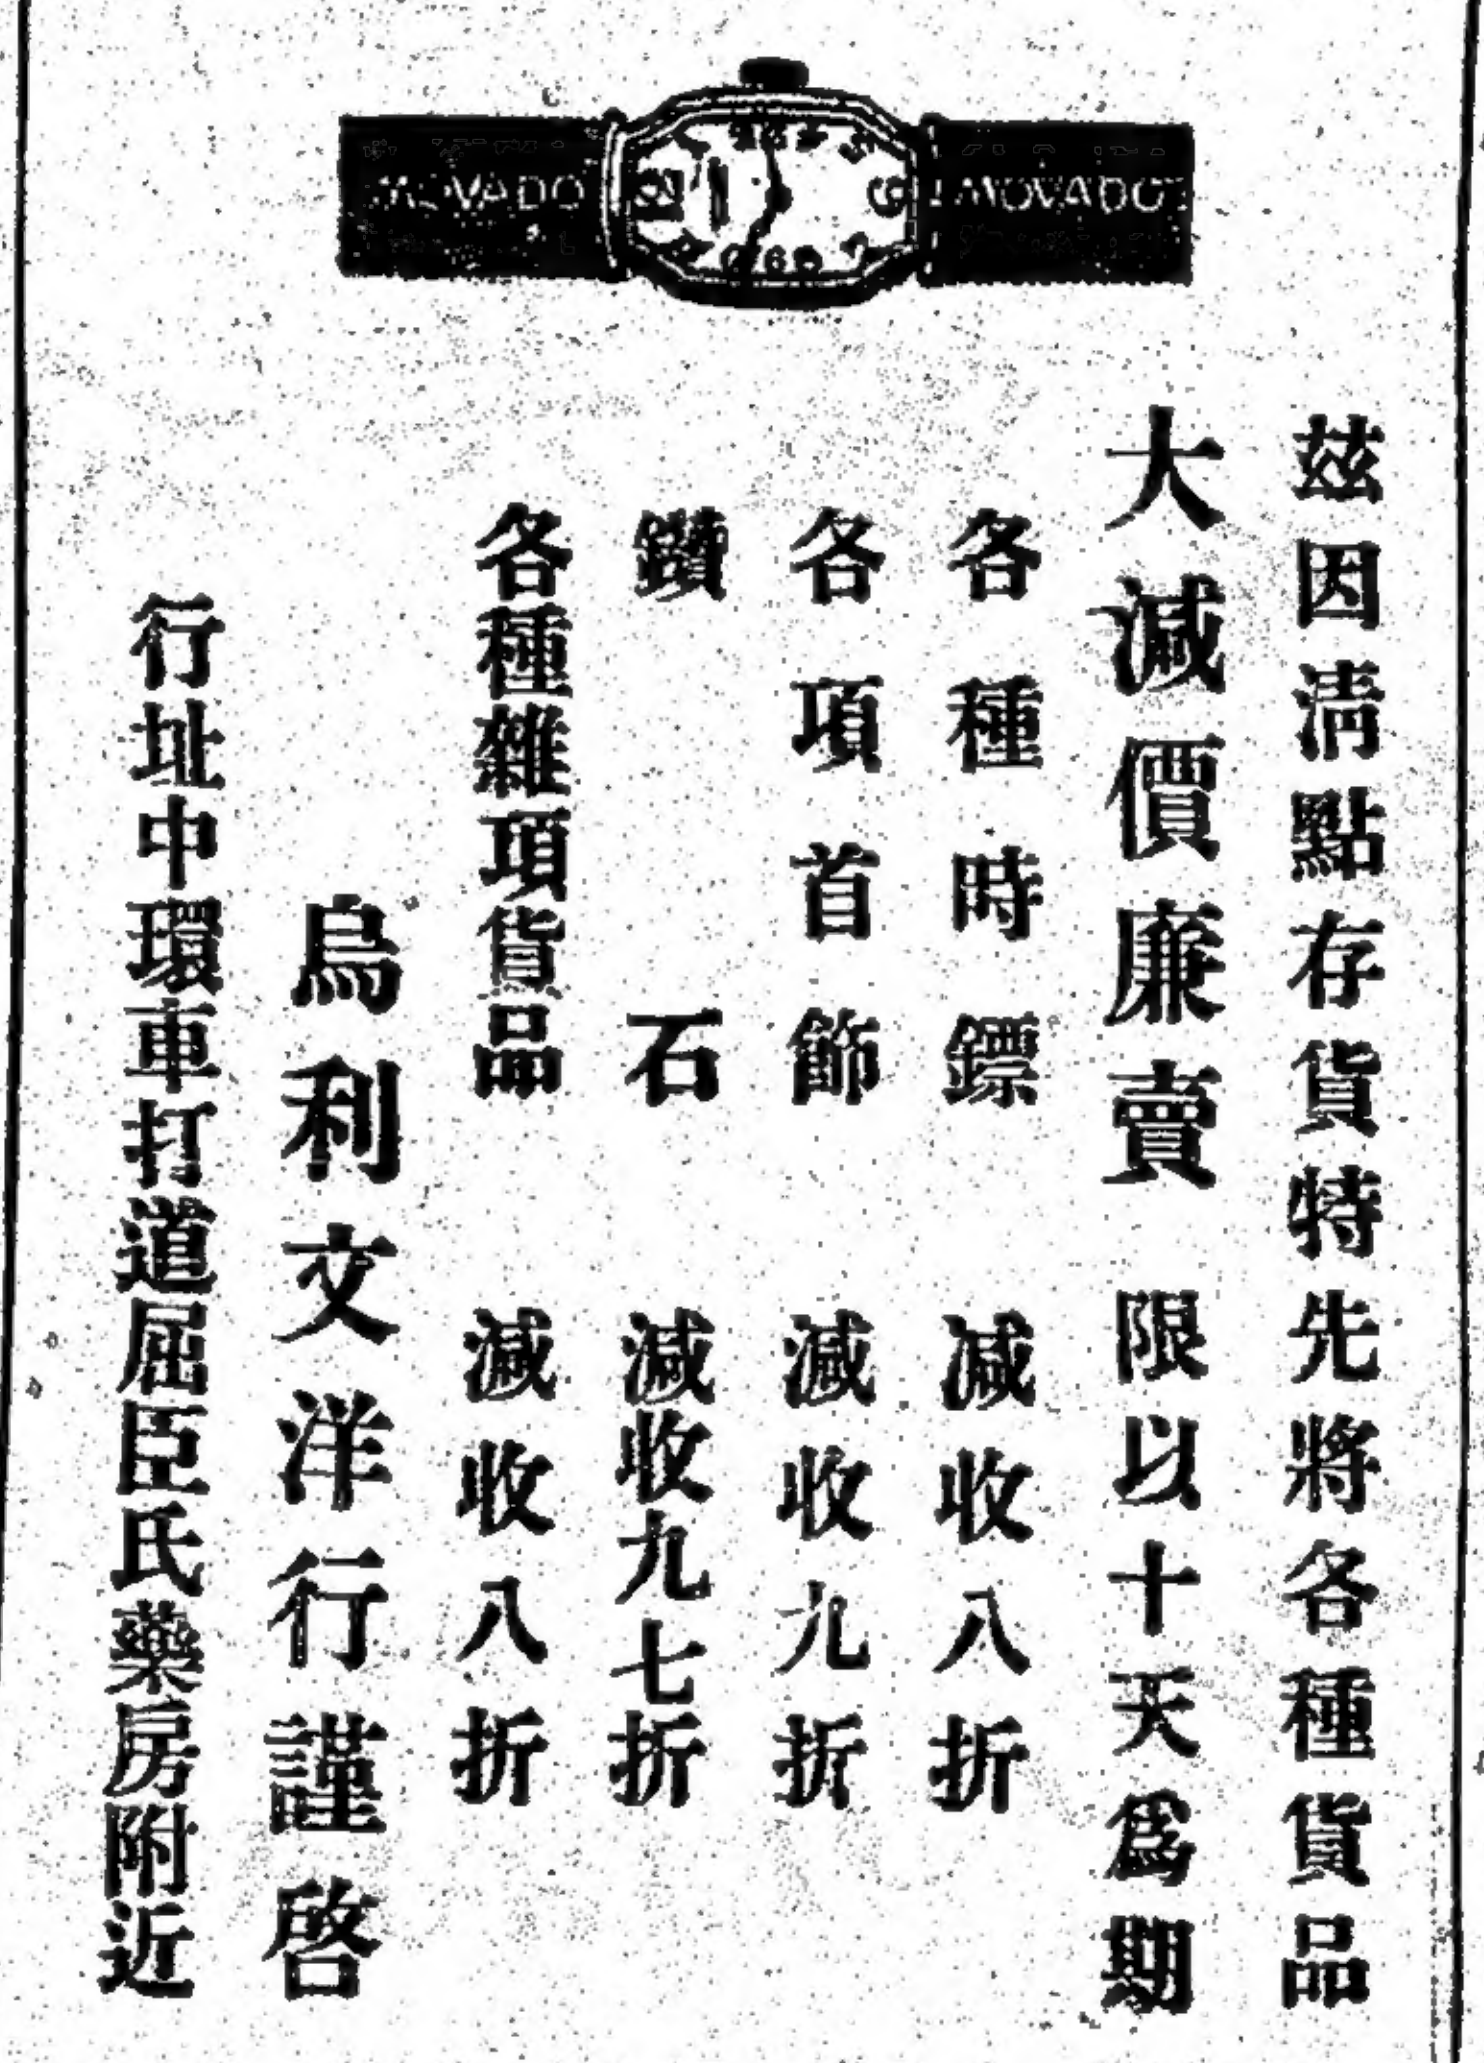 MOVADO MOVADO
茲因清點存貨特先將各種貨品
大減價廉賣 限以十天爲期
各種時鏢 減收八折
各項首節 減收九折
鑽石 減收九七折
各種雜項貨品 減收八折
烏利文洋行謹啓
行址中環車打道屈臣氏藥房附近